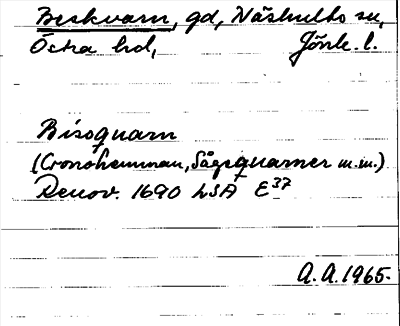 Beskvarn, gd, Näshults sn,
Östra hd, Jönk. l.
Bisoquarn
(Cronohemman, Sågequarner m.m.)
Renov. 1690 LSA E37
A.A. 1965.